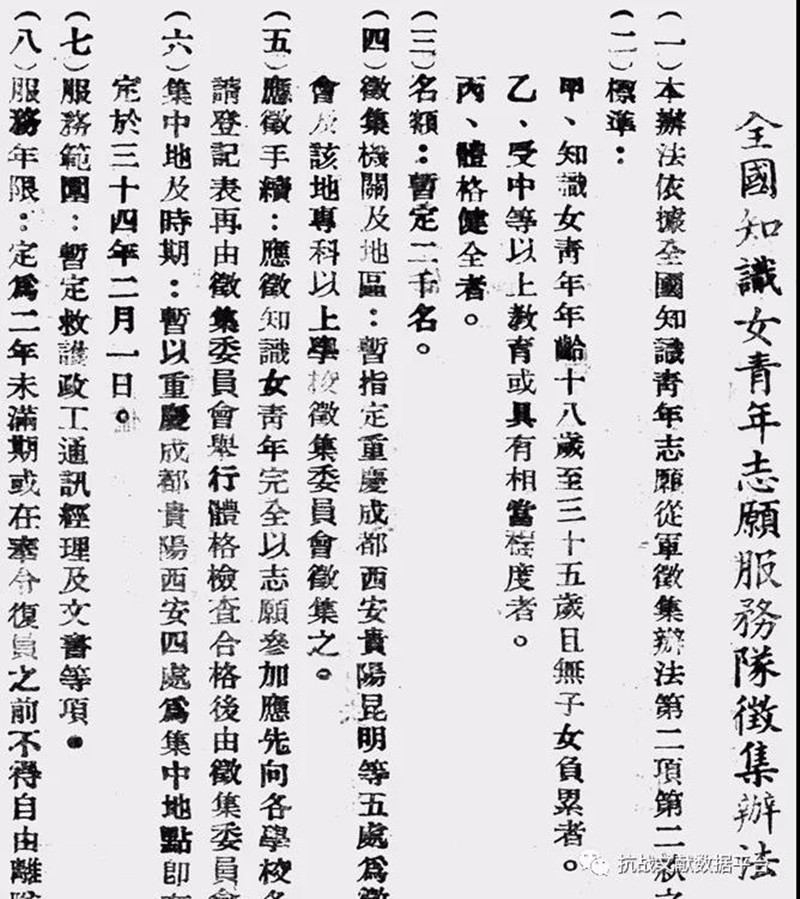 全國知識女青年志願服務隊徵集辦法
(一)本辦法依據全國知識青年志願從軍徵集辦法第二項第二款之
(二)標準：
甲、知識女青年年齡十八歲至三十五歲且無子女負累者。
乙、受中等以上教育或具有相當程度者。
丙、體格健全者。
(三)名額：暫定二千名。
(四)徵集機關及地區：暫指定重慶成都西安貴陽昆明等五處爲徵
會及該地專科以上學校徵集委員會徵集之。
(五)應徵手續：應徵知識女青年完全以志願參加應先向各學校各
請登記表再由徵集委員會舉行體格檢查合格後由徵集委員會
(六)集中地及時期：暫以重慶成都貴陽西安四處爲集中地點卽
定於三十四年二月一日。
(七)服務範圍：暫定救護政工通訊經理及文書等項。
(八)服務年限：定爲二年未滿期或在奉令復員之前不得自由離
抗战文献数据平台